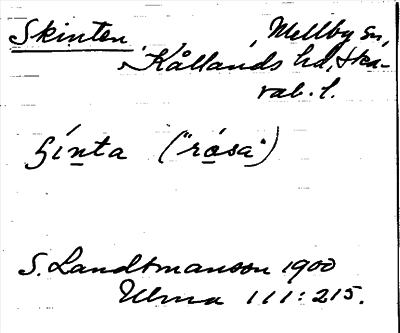 Skinten, Mellby sn,
Kållands hd, Ska-
rab. l.
ʃínta ("rósa")
S. Landtmanson 1900
Ulma 111:215.